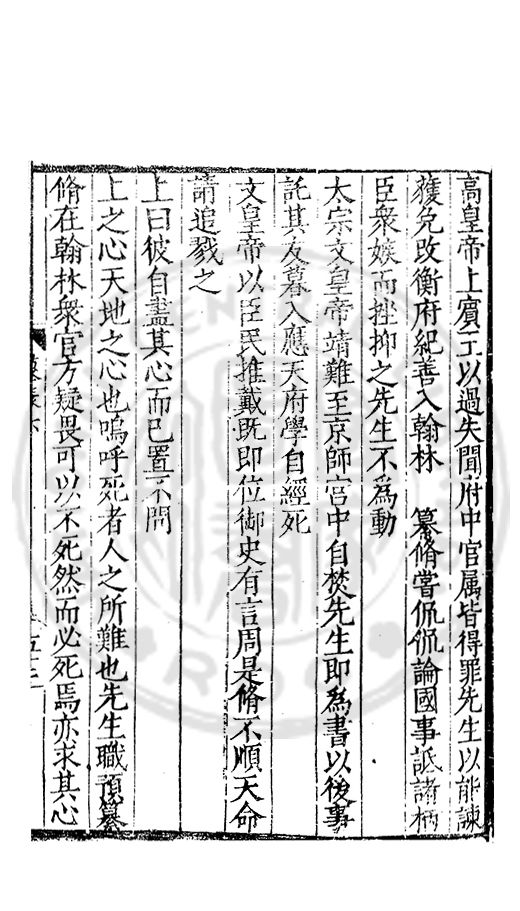 高皇帝上賓王以過失聞府中官属皆得罪先生以能諫
獲免改衡府紀善入翰林 纂脩嘗侃侃論國事詆諸柄
臣衆嫉而挫抑之先生不為動
太宗文皇帝靖難至京師宮中自焚先生即為書以後事
託其友暮入應天府學自經死
文皇帝以臣民推戴既即位御史有言周是脩不順天命
請追戮之
上曰彼自盡其心而已置不問
上之心天地之心也嗚呼死者人之所難也先生職預纂
脩在翰林衆官方疑畏可以不死然而必死焉亦求其心